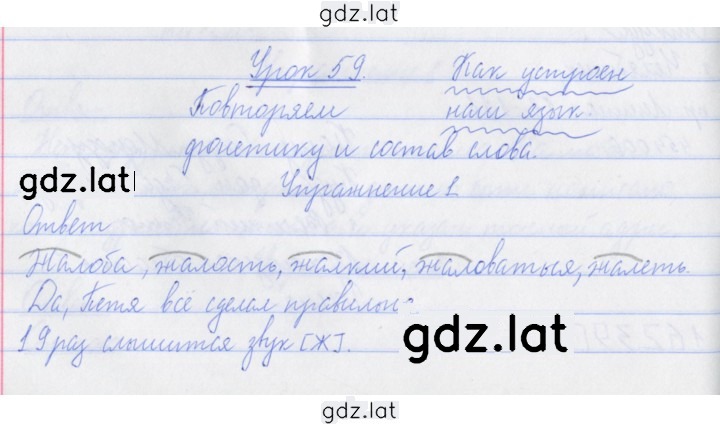 gdz.lat
Урок 59. Как устроен
Повторяем наш язык
фонетику и состав слова.
gdz.lat
Упражнение 1
Ответ
Жалоба, жалость, жалкий, жаловаться, жалеть.
Да, Петя всё сделал правильн
19 раз слышится звук [Ж].
gdz.lat
gdz.lat